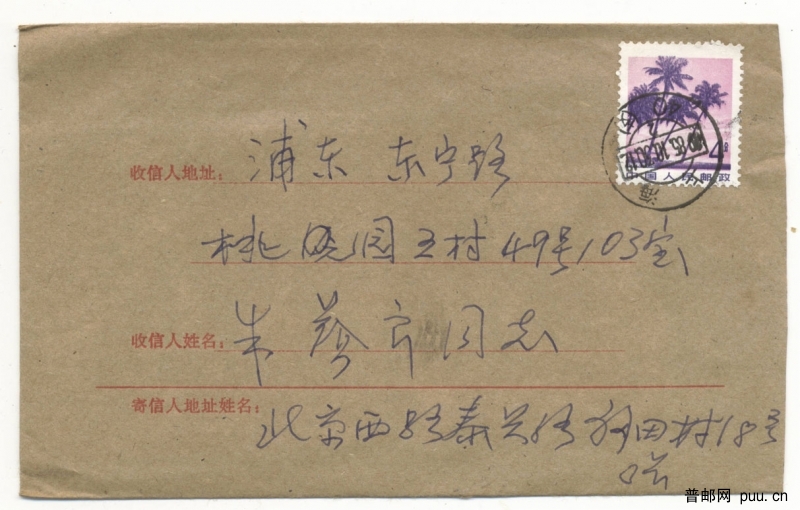 中国人民邮政
收信人地址: 浦东 东宁路
桃 园 村 49号103室
收信人姓名: 朱 同志
寄信人地址姓名:
北京西路泰兴路 田村18号
普邮网 puu.cn